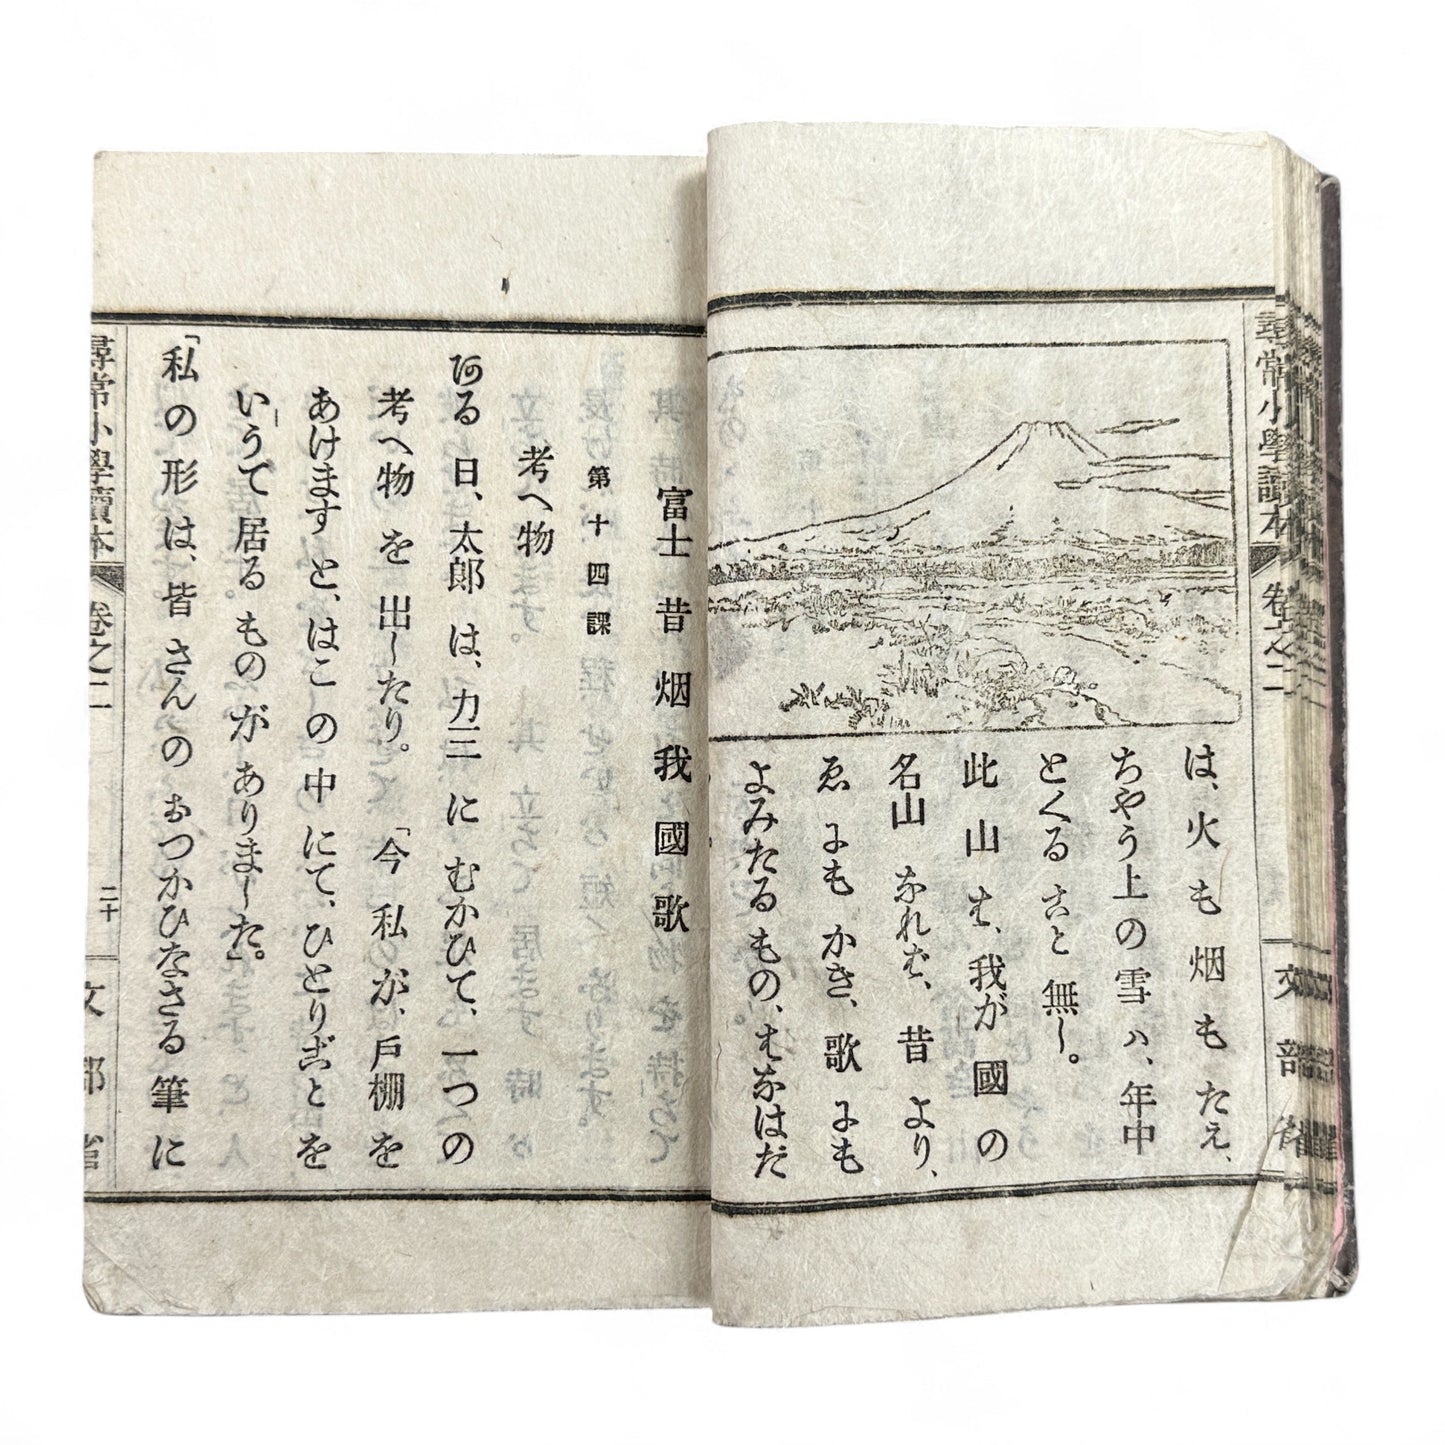 尋常小學讀本 卷之二 文部省
は、火も烟もたえ、
ちやう上の雪ハ、年中
とくることと無し。
此山は、我が國の
名山なれば、昔より、
ゑにもかき、歌にも
よみたるもの、はなはだ
富士 昔 烟 我 國 歌
第十四課
考へ物
ある日、太郎は、力三にむかひて、一つの
考へ物を出したり。「今私が、戸棚を
あけますと、はこの中にて、ひとりごとを
いうて居るものがありました。」
「私の形は、皆さんのおつかひなさる筆に
尋常小學讀本 卷之二 二十 文部省